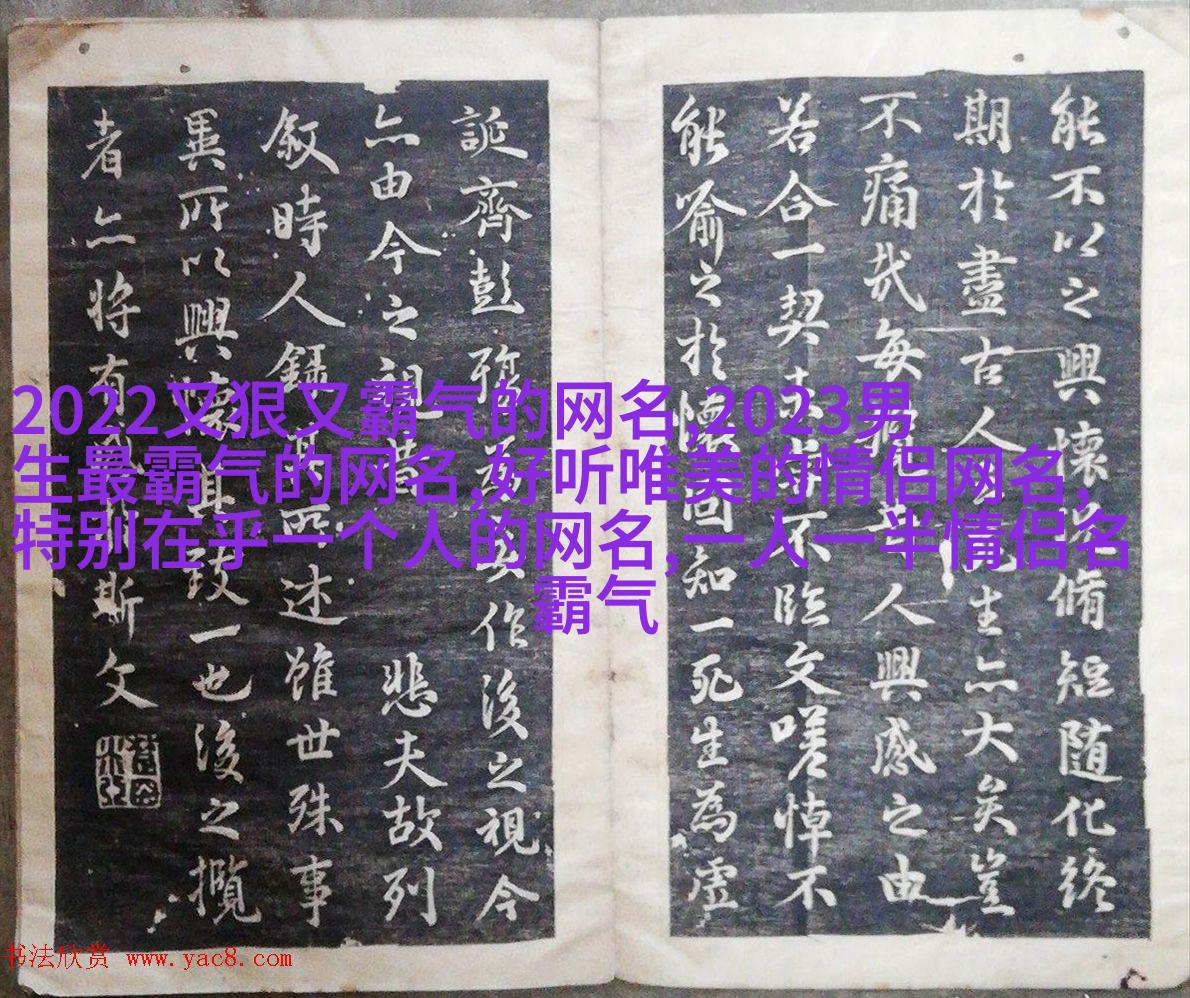 能不以之興懷况脩短随化終
期於盡古人云死生亦大矣豈
不痛哉每攬昔人興感之由
若合一契未嘗不臨文嗟悼不
能喻之於懷固知一死生為虛
誕齊彭殤為妄作後之視今
亦由今之視昔悲夫故列
叙時人錄其所述雖世殊事
異所以興懷其致一也後之攬
者亦將有感於斯文
2022又狠又霸气的网名,2023男
生最霸气的网名,好听唯美的情侣网名,
特别在乎一个人的网名,一人一半情侣名
霸气
书法欣赏 www.yac8.com